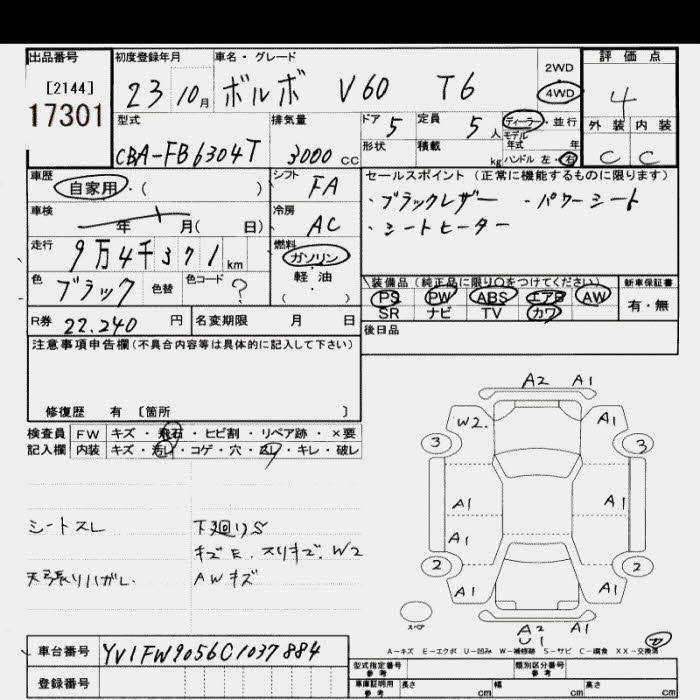 出品番号
[2144]
17301
初度登録年月 23 10月
車名・グレード ボルボ V60 T6
2WD
4WD
評価点
4
外装 内装
C C
型式 CBA-FB6304T
排気量 3000 CC
ドア 5
定員 5人
形状
積載 kg
ディーラー・並行
モデル年式 年
ハンドル 左・右
車歴 自家用・( )
シフト FA
車検 年 月( 日)
冷房 AC
走行 9万4千371km
燃料 ガソリン
軽・油
( )
色 ブラック 色替 色コード ?
R券 22.240円 名変期限 月 日
セールスポイント(正常に機能するものに限ります)
・ブラックレザー ・パワーシート
・シートヒーター
装備品(純正品に限り○をつけてください)
PS PW ABS エアB AW
SR ナビ TV カワ
新車保証書
有・無
後日品
注意事項申告欄(不具合内容等は具体的に記入して下さい)
修復歴 有 〔箇所 〕
検査員 FW キズ・飛石・ヒビ割・リペア跡・×要
記入欄 内装 キズ・汚レ・コゲ・穴・スレ・キレ・破レ
シートスレ
天張りハガレ
下廻りS
キズE、スリキズ、W2
AWキズ
A2 A1
W2. A1
3 3
A1 A1
A1
2 2
A1 A1
A2 A1
U1
スペア
A-キズ E-エクボ U-凹み W-補修跡 S-サビ C-腐食 XX-交換済
車台番号 YV1FW9056C1037884
登録番号
型式指定番号 参考
類別区分番号 参考
車庫証明用 参考 長さ cm 幅 cm 高さ cm